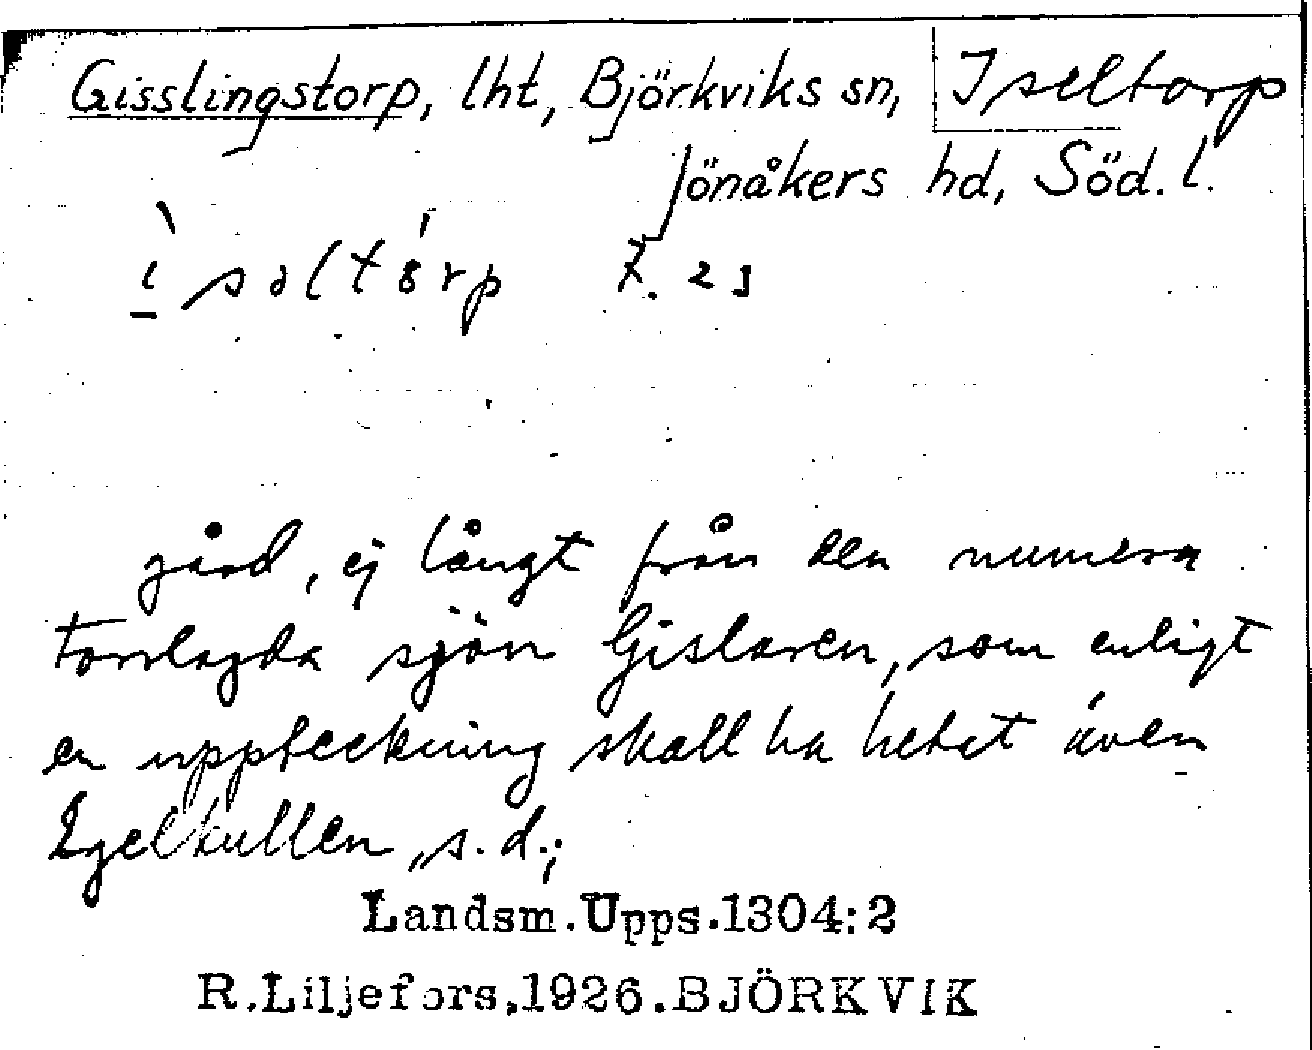 Gisslingstorp, lht, Björkviks sn, Iseltorp
Jönåkers hd, Söd. l.
ìsəltórp
gård, ej långt från den numera
torrlagda sjön Gislaren, som enligt
en uppteckning skall ha hetat även
Igelkullen, s. d.;
Landsm.Upps.1304:2
R.Liljefors.1926.BJÖRKVIK